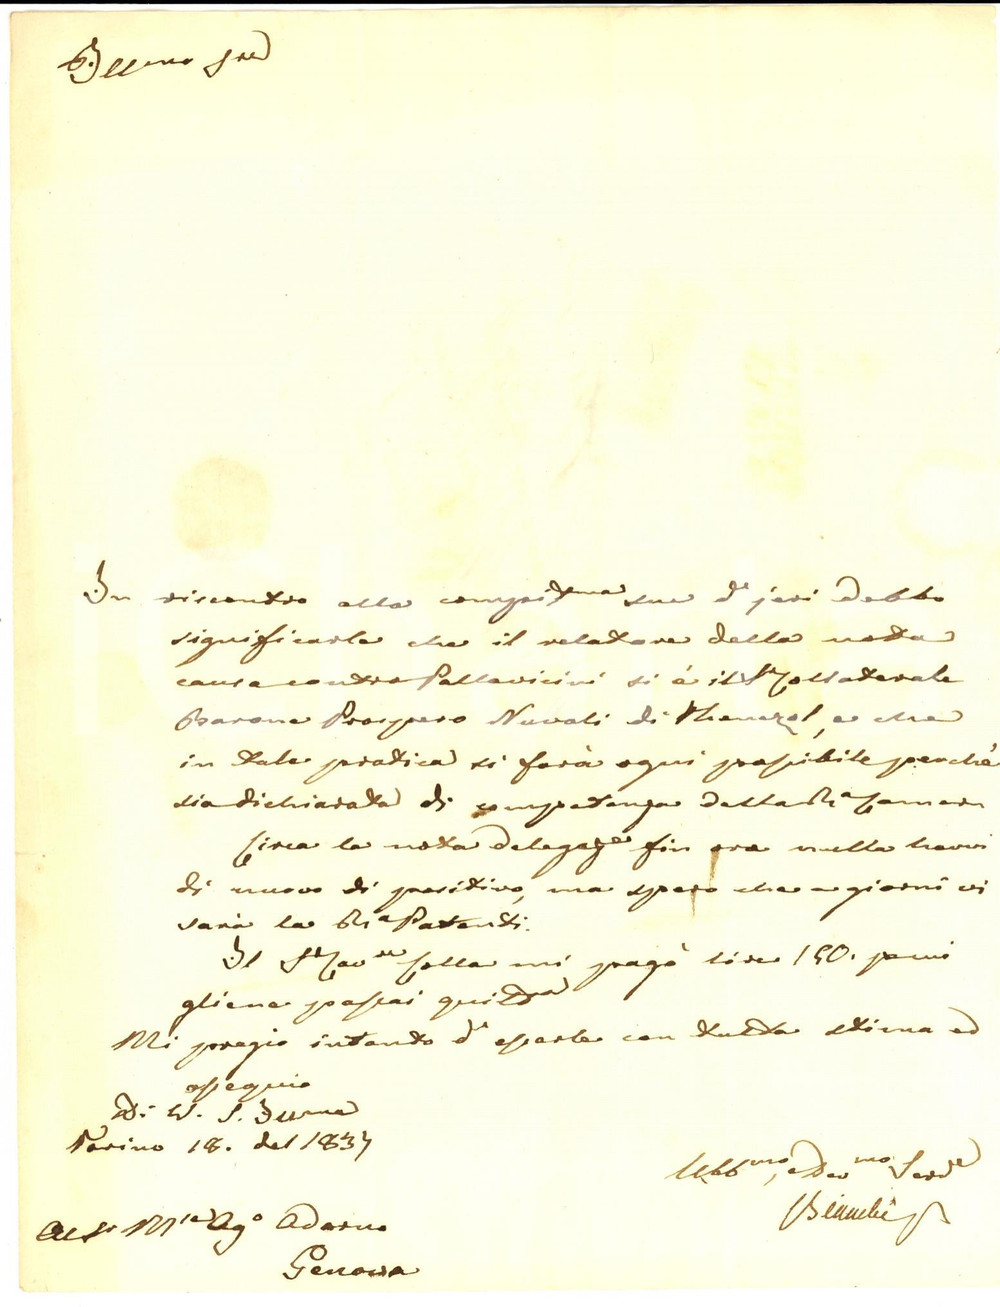 Ill.mo Sre
In riscontro alla compit.ma sua d' jeri debbo
significarle che il relatore della nota
causa contro Pallavicini si è il Sr Collaterale
Barone Prospero Nuvoli di Thenezol, e che
in tale pratica si farà ogni possibile perchè
sia dichiarata di competenza della Ra Camera
Circa la nota delegazne fin ora nulla havvi
di nuovo di positivo, ma spero che a giorni vi
sarà la Ra Patenti.
Il Sr Cavre Colla mi pagò lire 150. pmi
gliene passai quitza
Mi pregio intanto d' esserle con tutta stima ed
ossequio
Di V. S. Ill.ma
Torino 18. del 1837
Ubb.mo, e Dev.mo Serve
Bianchi
Al Sr M.se Ago Adorno
Genova